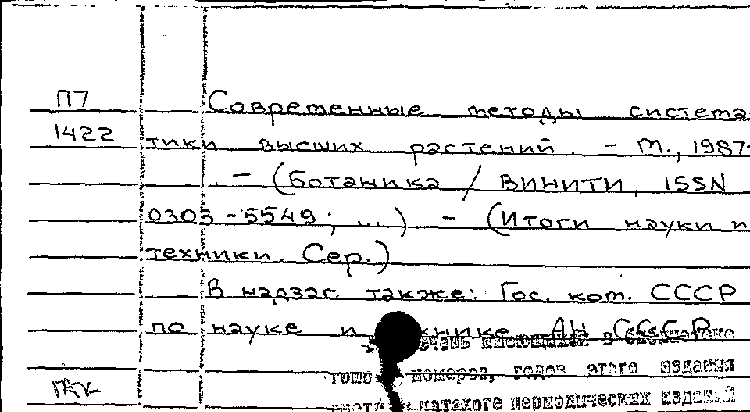 П7
Современные методы система
1422 тики высших растений. - М., 1987-
. - (Ботаника / ВИНИТИ, ISSN
0303-5549; ...) - (Итоги науки и
техники. Сер.)
В надзаг также: Гос. ком. СССР
по науке и АН СССР
номеров, годов этого издания
каталоге периодических изданий